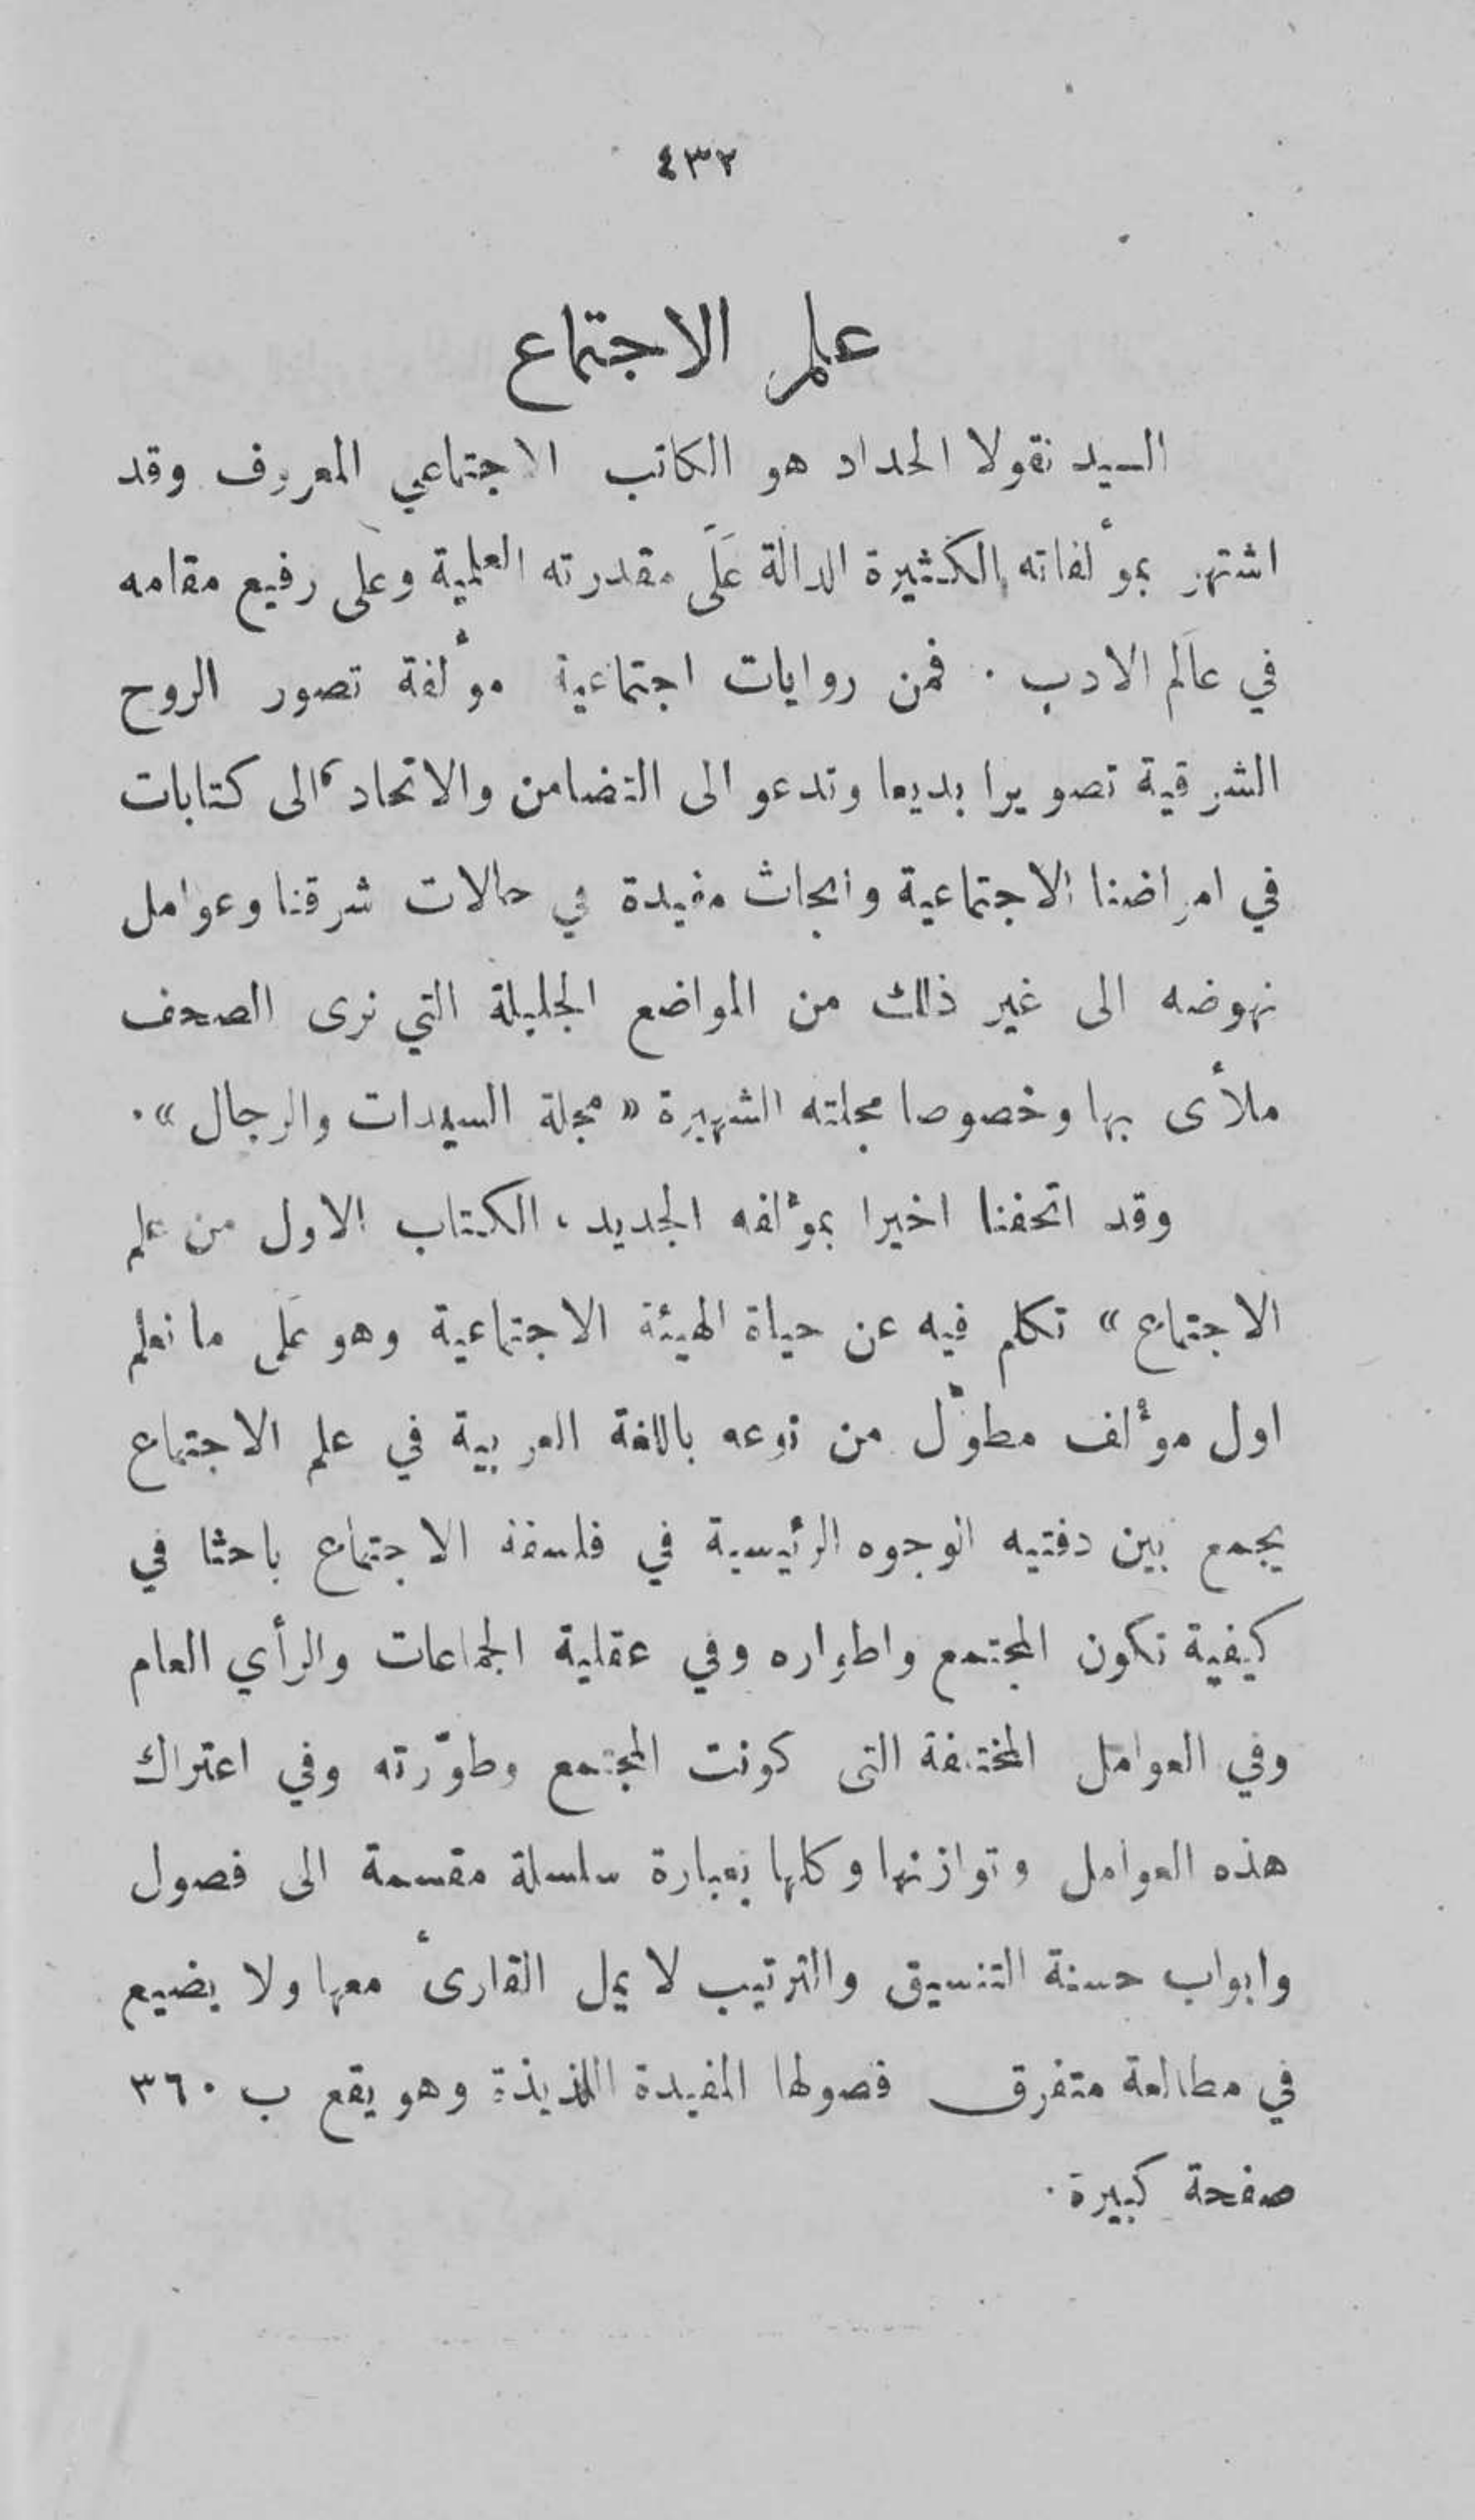 ٤٣٢
علم الاجتماع
السيد نقولا الحداد هو الكاتب الاجتماعي المعروف وقد
اشتهر بمؤلفاته الكثيرة الدالة عَلَى مقدرته العلمية وعلى رفيع مقامه
في عالَم الادب . فمن روايات اجتماعية مؤلفة تصور الروح
الشرقية تصويرا بديعا وتدعو الى التضامن والاتحاد ، الى كتابات
في امراضنا الاجتماعية وابحاث مفيدة في حالات شرقنا وعوامل
نهوضه الى غير ذلك من المواضع الجليلة التي نرى الصحف
ملأى بها وخصوصا مجلته الشهيرة « مجلة السيدات والرجال » .
وقد اتحفنا اخيرا بمؤلفه الجديد ، الكتاب الاول من علم
الاجتماع » تكلم فيه عن حياة الهيئة الاجتماعية وهو عَلَى ما نعلم
اول مؤلف مطوّل من نوعه باللغة العربية في علم الاجتماع
يجمع بين دفتيه الوجوه الرئيسية في فلسفة الاجتماع باحثا في
كيفية تكون المجتمع واطواره وفي عقلية الجماعات والرأي العام
وفي العوامل المختلفة التى كونت المجتمع وطوّرته وفي اعتراك
هذه العوامل وتوازنها وكلها بعبارة سلسلة مقسمة الى فصول
وابواب حسنة التنسيق والترتيب لا يمل القارئ معها ولا يضيع
في مطالعة متفرق فصولها المفيدة اللذيذة وهو يقع ب ٣٦٠
صفحة كبيرة .